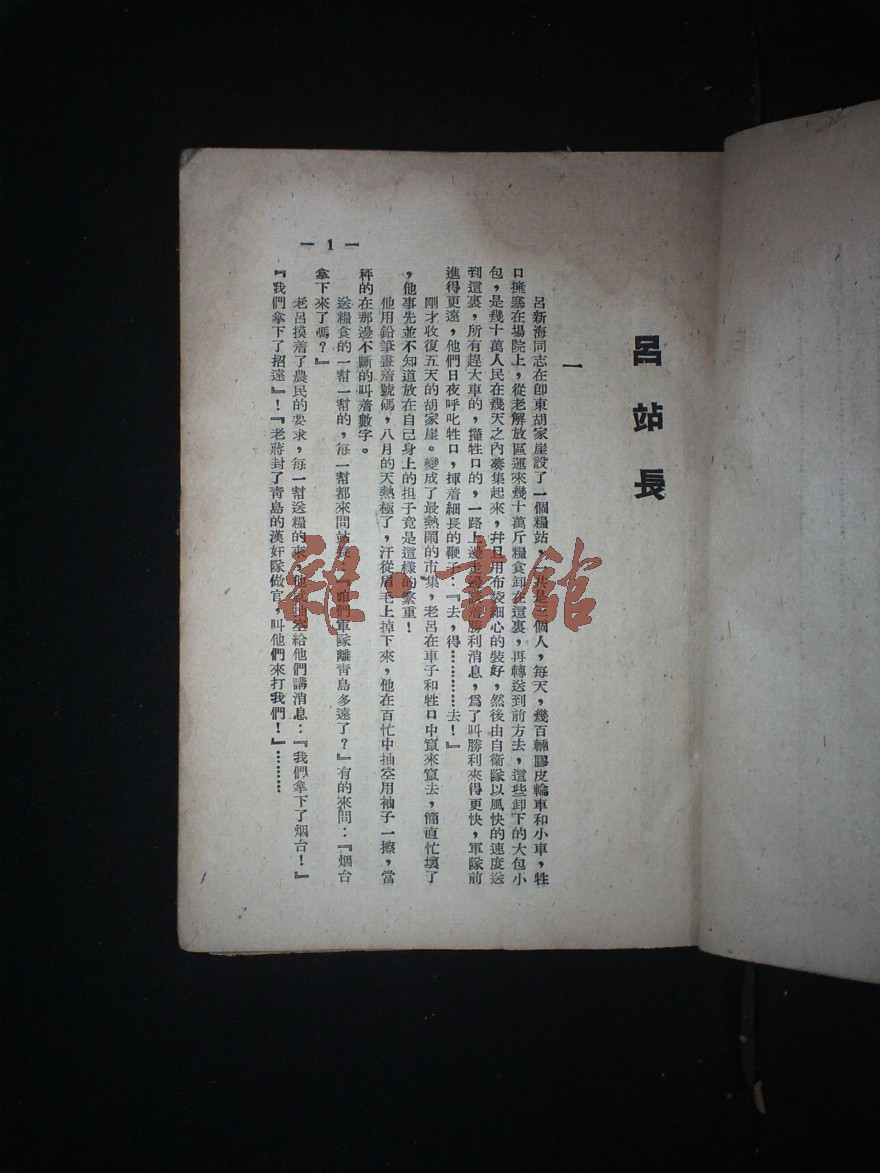 呂站長
一
呂新海同志在卽東胡家崖設了一個糧站，一共是 個人，每天，幾百輛膠皮輪車和小車，牲
口擁塞在場院上，從老解放區運來幾十萬斤糧食卸在這裏，再轉送到前方去，這些卸下的大包小
包，是幾十萬人民在幾天之內凑集起來，幷且用布袋細心的裝好，然後由自衞隊以風快的速度送
到這裏，所有趕大車的，攆牲口的，一路上邊走邊 着勝利消息，爲了叫勝利來得更快，軍隊前
進得更遠，他們日夜呼叱牲口，揮着細長的鞭子：『去，得…………去！』
剛才收復五天的胡家崖。變成了最熱鬧的市集，老呂在車子和牲口中竄來竄去，簡直忙壞了
，他事先並不知道放在自己身上的担子竟是這樣的繁重！
他用鉛筆畫着號碼，八月的天熱極了，汗從眉毛上掉下來，他在百忙中抽空用袖子一擦，當
秤的在那邊不斷的叫着數字。
送糧食的一幫一幫的，每一幫都來問站長：『咱們軍隊離靑島多遠了？』有的來問：『烟台
拿下來了嗎？』
老呂摸着了農民的要求，每一幫送糧的來，他就抽空給他們講消息：『我們拿下了烟台！』
『我們拿下了招遠』！『老蔣封了靑島的漢奸隊做官，叫他們來打我們！』…………
— 1 —
雜·書館